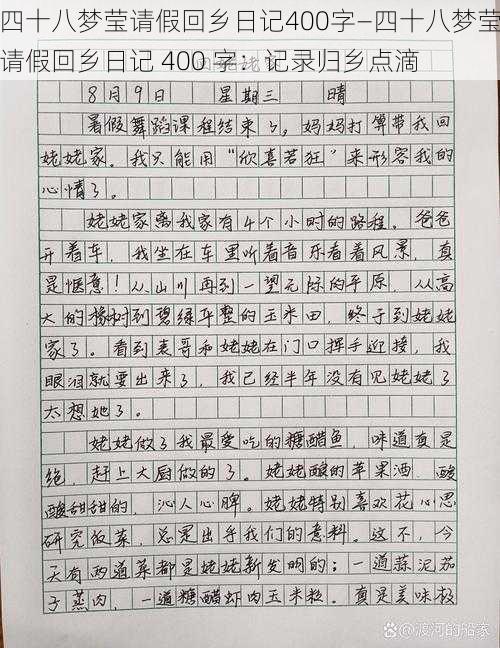 四十八梦莹请假回乡日记400字—四十八梦莹
请假回乡日记 400 字：记录归乡点滴
8月9日 星期三 晴
暑假舞蹈课程结束了，妈妈打算带我回
姥姥家。我只能用“欣喜若狂”来形容我的
心情了。
姥姥家离我家有4个小时的路程。爸爸
开着车，我坐在车里听着音乐看着风景，真
是惬意！从山川再到一望无际的平原，从高
大的杨树到碧绿平整的玉米田，终于到姥姥
家了。看到表哥和姥姥在门口挥手迎接，我
眼泪就要出来了，我已经半年没有见姥姥了
太想她了。
姥姥做了我最爱吃的糖醋鱼，味道真是
绝，赶上大厨做的了。姥姥酿的苹果酒，酸
酸甜甜的，沁人心脾。姥姥特别喜欢花心思
研究饭菜，总是出乎我们的意料。这不，今
天有两道菜都是姥姥新发明的；一道蒜泥茄
子蒸肉，一道糖醋虾肉玉米粒。真是美味极
@渡河的船家